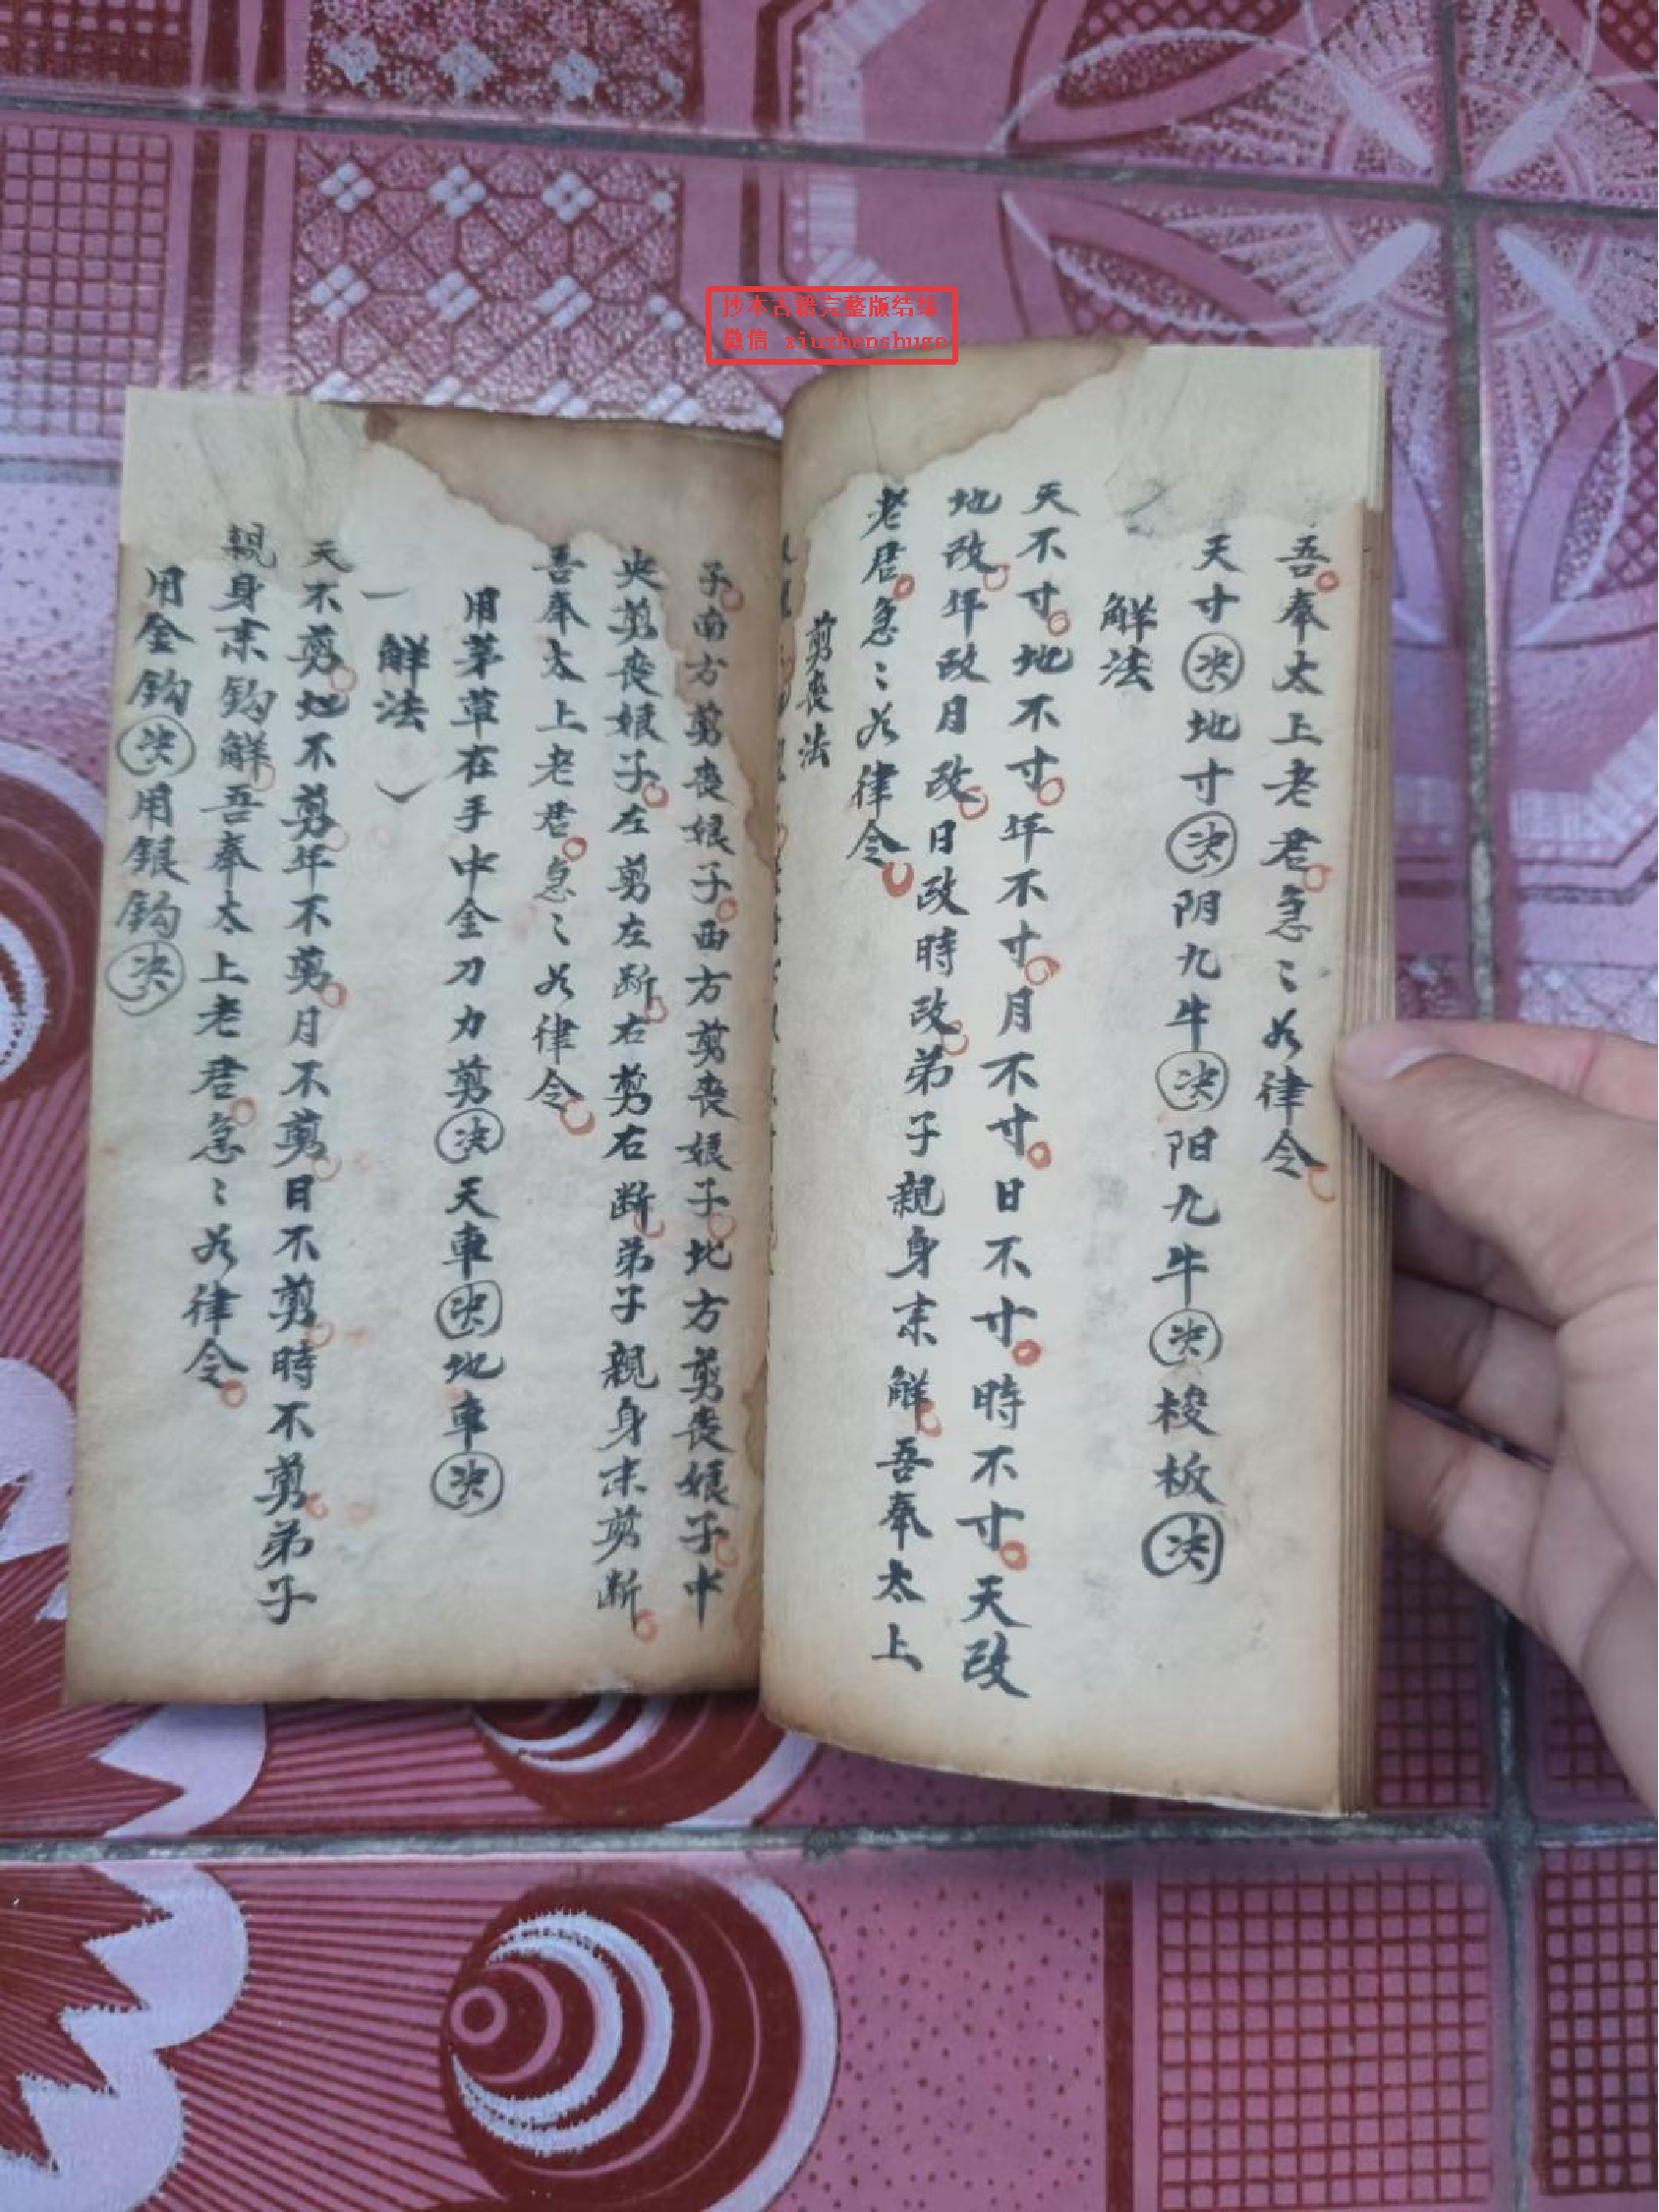 抄本古籍完整版结缘
微信 xiuzhenshuge
吾奉太上老君急〻如律令
天寸决地寸决阴九牛决阳九牛决梭板决
解法
天不寸地不寸年不寸月不寸日不寸時不寸天改
地改年改月改日改時改弟子親身来解吾奉太上
老君急〻如律令
剪丧法
子南方剪丧娘子西方剪丧娘子北方剪丧娘子中
央剪丧娘子左剪左断右剪右断弟子親身来剪断
吾奉太上老君急〻如律令
用茅草在手中金刀力剪决天車决地車决
解法
天不剪地不剪年不剪月不剪日不剪時不剪弟子
親身来鈎解吾奉太上老君急〻如律令
用金鈎决用銀鈎决